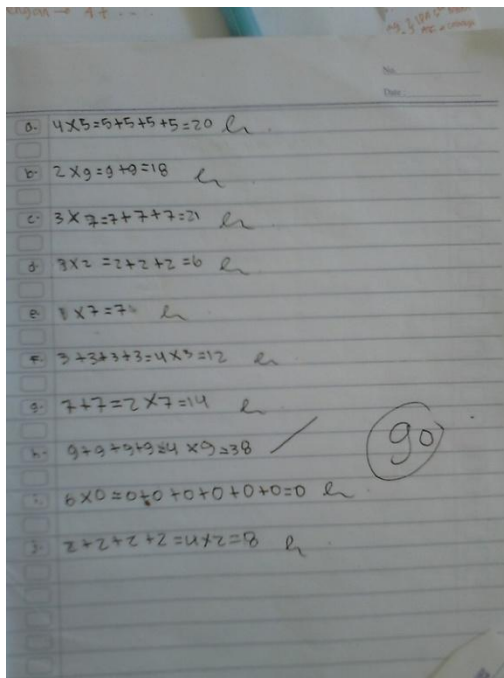 No.
Date
a. 4×5=5+5+5+5=20
b. 2×9=9+9=18
c. 3×7=7+7+7=21
d. 3×2=2+2+2=6
e. 1×7=7
f. 3+3+3+3=4×3=12
g. 7+7=2×7=14
h. 9+9+9+9=4×9=38
90
i. 6×0=0+0+0+0+0+0=0
j. 2+2+2+2=4×2=8